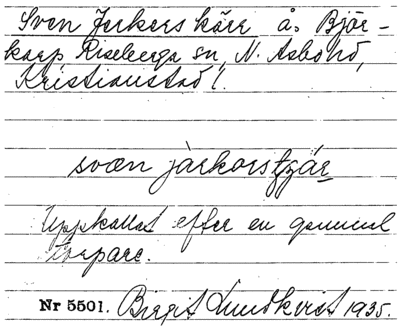 Sven Jerkers kärr å. Björ-
karp Riseberga sn, N. Åsbo hd,
Kristianstad l.
svæn jàrkors
Uppkallat efter en gammal
torpare.
Nr 5501. Birgit Lundkvist 1935.